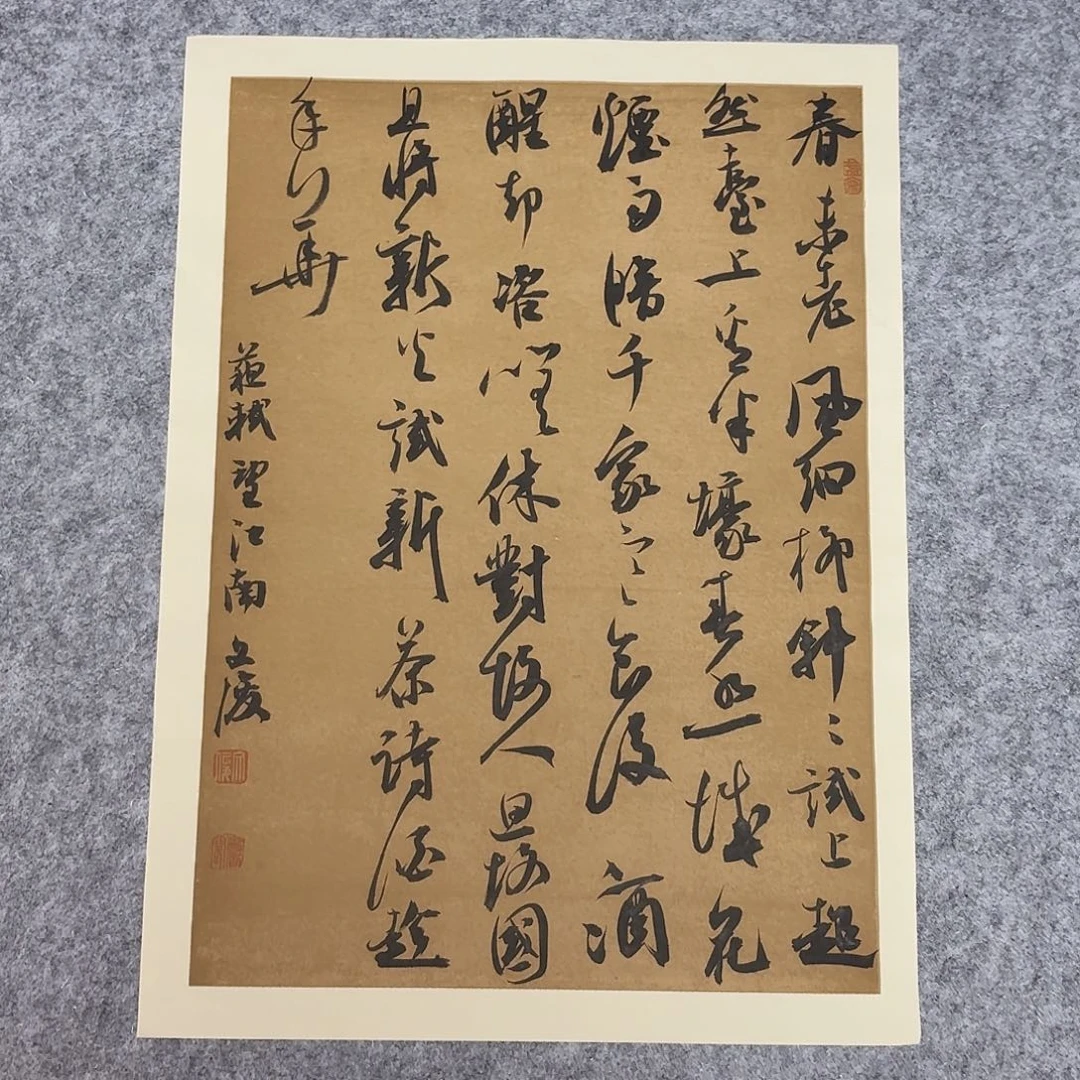 春未老風細柳斜〻試上超
然臺上看半壕春水一城花
煙雨暗千家寒食後酒
醒却咨嗟休對故人思故國
且將新火試新茶詩酒趁
年華
蘇軾望江南